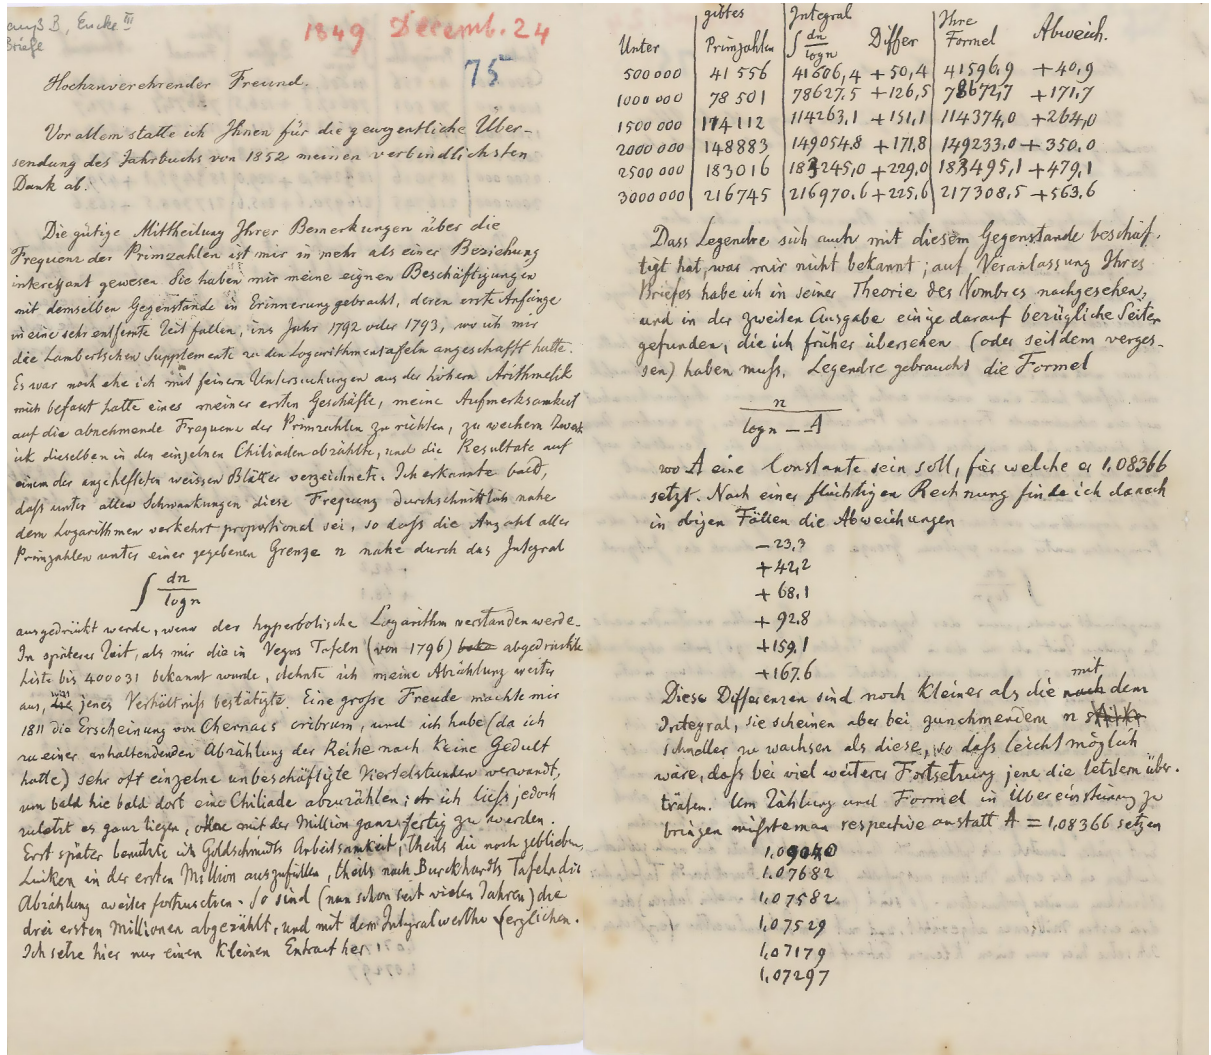 Gauß B, Encke III
Briefe
1849 Decemb. 24
75
Hochzuverehrender Freund.
Vor allem statte ich Ihnen für die gewogentliche Über-
sendung des Jahrbuchs von 1852 meinen verbindlichsten
Dank ab.
Die gütige Mittheilung Ihrer Bemerkungen über die
Frequenz der Primzahlen ist mir in mehr als einer Beziehung
interessant gewesen. Sie haben mir meine eignen Beschäftigungen
mit demselben Gegenstande in Erinnerung gebracht, deren erste Anfänge
in eine sehr entfernte Zeit fallen, ins Jahr 1792 oder 1793, wo ich mir
die Lambertschen Supplemente zu den Logarithmentafeln angeschafft hatte.
Es war noch ehe ich mit feinern Untersuchungen aus der höhern Arithmetik
mich befasst hatte eines meiner ersten Geschäfte, meine Aufmerksamkeit
auf die abnehmende Frequenz der Primzahlen zu richten, zu welchem Zweck
ich dieselben in den einzelnen Chiliaden abzählte, und die Resultate auf
einem der angehefteten weissen Blätter verzeichnete. Ich erkannte bald,
daſs unter allen Schwankungen diese Frequenz durchschnittlich nahe
dem Logarithmen verkehrt proportional sei, so daſs die Anzahl aller
Primzahlen unter einer gegebenen Grenze n nahe durch das Integral
∫ dn/logn
ausgedrückt werde, wenn der hyperbolische Logarithm verstanden werde.
In späterer Zeit, als mir die in Vegas Tafeln (von 1796) abgedruckte
Liste bis 400031 bekannt wurde, dehnte ich meine Abzählung weiter
aus, was jenes Verhältniſs bestätigte. Eine groſse Freude machte mir
1811 die Erscheinung von Chernacs cribrum, und ich habe (da ich
zu einer anhaltendenden Abzählung der Reihe nach keine Gedult
hatte) sehr oft einzelne unbeschäftigte Viertelstunden verwandt,
um bald hie bald dort eine Chiliade abzuzählen; ich lieſs jedoch
zuletzt es ganz liegen, ohne mit der Million ganz fertig zu werden.
Erst später benutzte ich Goldschmidts Arbeitsamkeit, theils die noch geblieben
Lücken in der ersten Million auszufüllen, theils nach Burckhardts Tafeln die
Abzählung weiter fortzusetzen. So sind (nun schon seit vielen Jahren) die
drei ersten Millionen abgezählt, und mit dem Integralwerthe verglichen.
Ich setze hier nur einen kleinen Extract her
Unter gibtes Primzahlen Integral ∫ dn/logn Differ Ihre Formel Abweich.
500000 41556 41606,4 +50,4 41596,9 +40,9
1000000 78501 78627,5 +126,5 78672,7 +171,7
1500000 114112 114263,1 +151,1 114374,0 +264,0
2000000 148883 149054.8 +171,8 149233.0 +350.0
2500000 183016 183245,0 +229,0 183495,1 +479,1
3000000 216745 216970.6 +225.6 217308.5 +563.6
Dass Legendre sich auch mit diesem Gegenstande beschäf-
tigt hat, war mir nicht bekannt; auf Veranlassung Ihres
Briefes habe ich in seiner Theorie des Nombres nachgesehen,
und in der zweiten Ausgabe einige darauf bezügliche Seiten
gefunden, die ich früher übersehen (oder seitdem verges-
sen) haben muſs. Legendre gebraucht die Formel
n/logn - A
wo A eine Constante sein soll, für welche er 1,08366
setzt. Nach einer flüchtigen Rechnung finde ich danach
in obigen Fällen die Abweichungen
-23,3
+42,2
+68,1
+92.8
+159,1
+167.6
Diese Differenzen sind noch kleiner als die mit dem
Integral, sie scheinen aber bei zunehmendem n
schneller zu wachsen als diese, so daſs leicht möglich
wäre, daſs bei viel weiterer Fortsetzung jene die letztern über-
träfen. Um Zählung und Formel in Übereinstimmung zu
bringen müſste man respective anstatt A = 1,08366 setzen
1,09040
1,07682
1,07582
1,07529
1,07179
1,07297